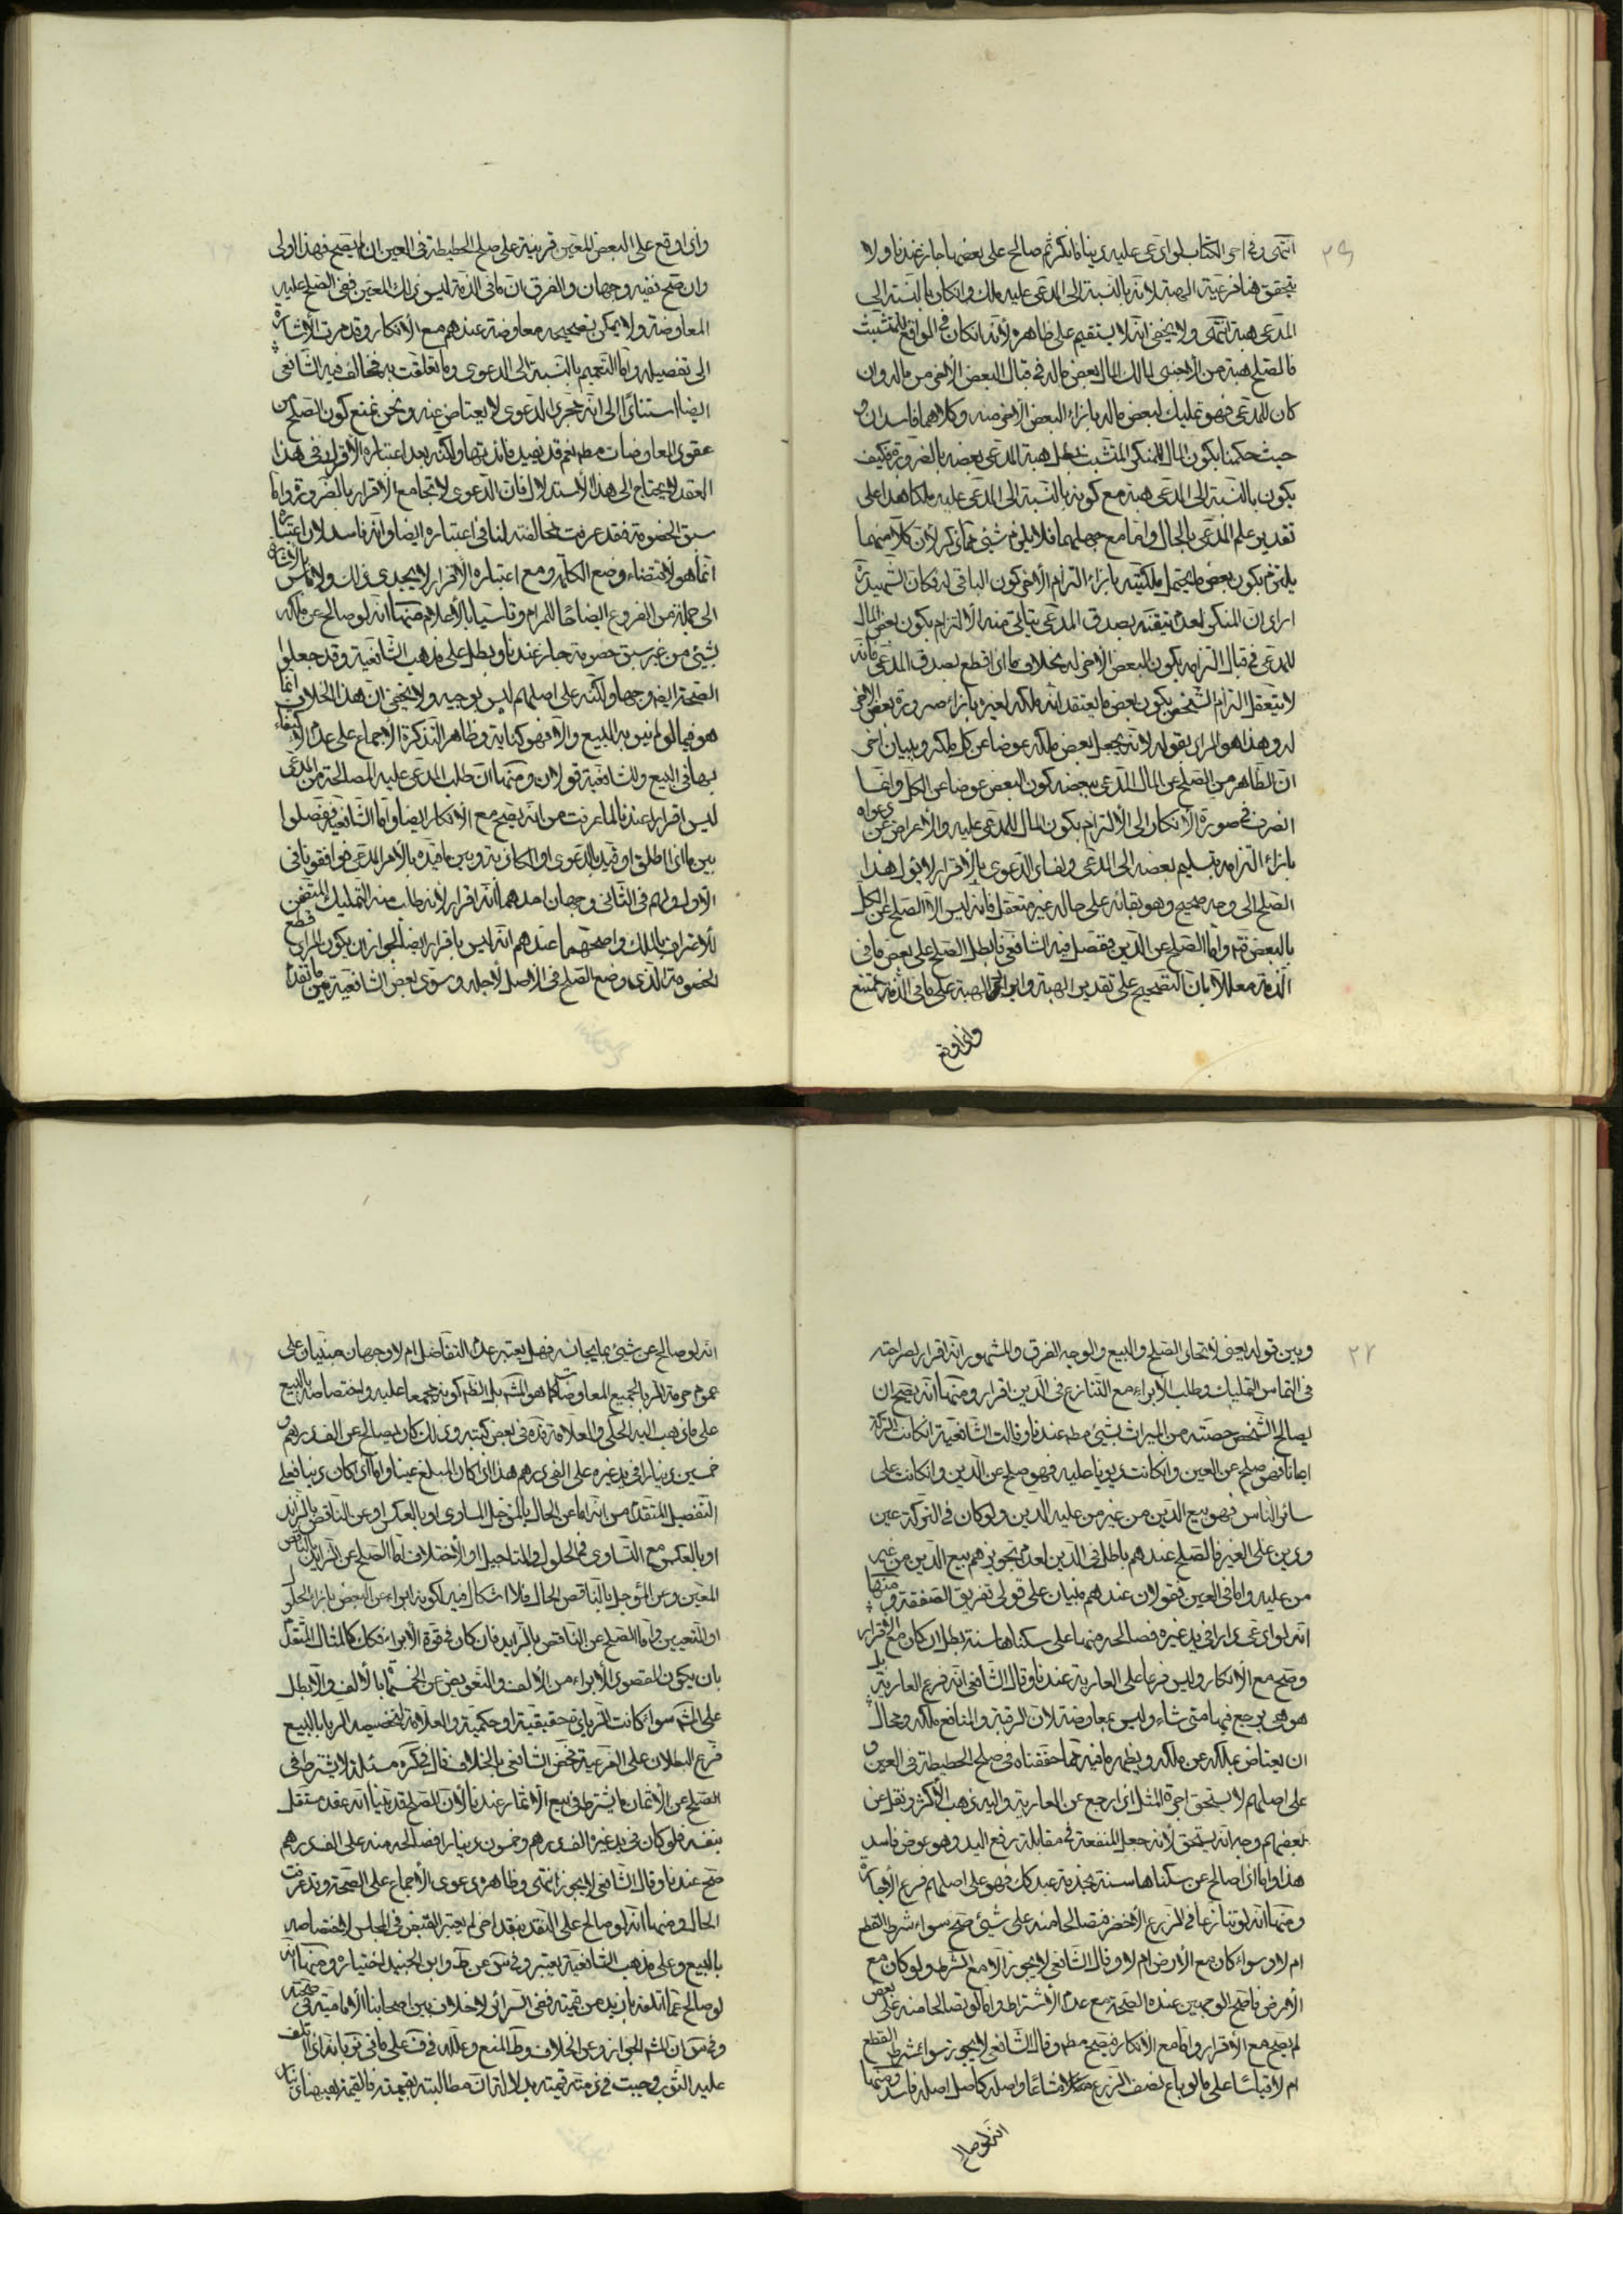 انتهى وفى احى الكتاب لو ادعى عليه دينا فانكر ثم صالح على بعضها جاز عندنا ولا
يتحقق هنا فرعية الهبة لانه بالنسبة الى المدعى عليه ملك وانكان بالنسبة الى
المدعى هبة انتهى ولا يخفى انه لا يستقيم على ظاهره لأنه انكان فى الواقع للمتشبث
فالصلح هبة من الأجنبى لمالك المال بعض ماله فى قبال البعض الأخر من ماله وان
كان للمدعى فهو تمليك لبعض ماله بازاء البعض الأخر منه وكلاهما فاسدان و
حيث حكمنا بكون المال للمنكر المتشبث بطل هبة المدعى بعضه بالضرورة فكيف
يكون بالنسبة الى المدعى هبة مع كونه بالنسبة الى المدعى عليه ملكا هذا على
تقدير علم المدعى بالحال واما مع جهلهما فلا يلزم شئى مما ذكر لأن كلا منهما
يلتزم بكون بعض ما يحتمل ملكيته بازاء التزام الأخر كون الباقى له فكان الشهيد ره
اراد ان المنكر لعدم تيقنه بصدق المدعى يتاتى منه الالتزام بكون بعض المال
للمدعى فى قبال التزامه بكون البعض الأخر له بخلاف ما اذا قطع بصدق المدعى فانه
لا يتعقل التزام الشخص بكون بعض ما يعتقد انه ملكه لغيره بازاء صيرورة بعض الاخر
له وهذا هو المراد بقوله لانه يجعل بعض ملكه عوضا عن كل ملكه وببيان اخر
ان الظاهر من الصلح عن المال المدعى ببعضه كون البعض عوضا عن الكل وانما
انصرف فى صورة الأنكار الى الألتزام بكون المال للمدعى عليه والأعراض عن دعواه
بازاء التزامه بتسليم بعضه الى المدعى ولفساد الدعوى بالأقرار لا يؤل هذا
الصلح الى وجه صحيح وهو بقائه على حاله غير متعقل فانه ليس الا الصلح عن الكل
بالبعض واما الصلح عن الدين ففصل فيه الشافعى فابطل الصلح على بعض ما فى
الذمة معللا بان التصحيح على تقدير الهبة وايراد الهبة على ما فى الذمة ممتنع
واذا وقع
واذا وقع على البعض المعين قرينة على صلح الحطيطة فى العين ان لم يصح فهذا اولى
وان صح ففيه وجهان والفرق ان ما فى الذمة ليس ذلك المعين ففى الصلح عليه
المعاوضة ولا يمكن تصحيحه معاوضة عندهم مع الأنكار وقد مرت الأشارة
الى تفصيله واما التعميم بالنسبة الى الدعوى وما تعلقت به فخالف فيه الشافعى
ايضا استنادا الى انه مجرد الدعوى لا يعتاض عنه ونحن نمنع كون الصلح من
عقود المعاوضات مطم نعم قد يفيد فائدتها ولكنه بعد اعتباره الأقرار فى هذا
العقد لا يحتاج الى هذا الأستدلال فان الدعوى لا تجامع الأقرار بالضرورة واما
سبق الخصومة فقد عرفت مخالفته لنا فى اعتباره ايضا وانه فاسد لان اعتباره
انما هو لأقتضاء وضع الكلمة ومع اعتباره الأقرار لا يجدى ذلك ولا باس بالأشارة
الى جملة من الفروع ايضاحا للمرام وتاسيا بالأعلام منها انه لو صالح عن ملكه
بشئى من غير سبق خصومة جاز عندنا ويبطل على مذهب الشافعية وقد جعلوا
الصحة ايض وجها ولكنه على اصلهم ليس بوجيه ولا يخفى ان هذا الخلاف انما
هو فيما لو لم ينو به البيع والا فهو كناية وظاهر التذكرة الأجماع على عدم الأكتفاء
بها فى البيع وللشافعية قولان ومنها ان طلب المدعى عليه المصالحة من المدعى
ليس اقرارا عندنا لما عرفت من انه يصح مع الأنكار ايضا واما الشافعية ففصلوا
بين ما اذا اطلق او قيد بالدعوى او المكاذبة وبين ما قيده بالأمر المدعى فوافقونا فى
الأول ولهم فى الثانى وجهان احدهما انه اقرار لأنه طلب منه التمليك المتضمن
للأعتراف بالملك واصحهما عندهم انه ليس باقرار ايضا لجواز ان يكون المراد قطع
الخصومة الذى وضع الصلح فى الأصل لأجله وسوى بعض الشافعية بين ما تقدم
وبين قوله بعنى لأتحاد الصلح والبيع والوجه الفرق والمشهور انه اقرار لصراحته
فى التماس التمليك وطلب الابراء مع التنازع فى الدين اقرار ومنها انه يصح ان
يصالح الشخص حصته من الميراث بشئى مطم عندنا وقالت الشافعية انكانت التركة
اعيانا فهو صلح عن العين وانكانت ديونا عليه فهو صلح عن الدين وانكانت على
سائر الناس فهو بيع الدين من غير من عليه الدين ولو كان فى التركة عين
ودين على الغير فالصلح عندهم باطل فى الدين لعدم تجويزهم بيع الدين من غير
من عليه واما فى العين فقولان عندهم مبنيان على قولى تفريق الصفقة ومنها
انه لو ادعى دارا فى يد غيره فصالحه منها على سكناها سنة بطل ان كان مع الأقرار
وصح مع الأنكار وليس فرعا على العارية عندنا وقال الشافعى انه فرع العارية بل
هو هى يرجع فيها متى شاء وليس بمعاوضة لان الرقبة والمنافع ملكه ومحال
ان يعتاض بملكه عن ملكه ويظهر ما فيه مما حققناه فى صلح الحطيطة فى العين و
على اصلهم لا يستحق اجرة المثل اذا رجع عن العارية واليه ذهب الأكثر ونقل عن
بعضهم وجه انه يستحق لأنه جعل المنفعة فى مقابلة رفع اليد وهو عوض فاسد
هذا واما اذا صالح عن سكناها سنة بخدمة عبد كك فهو على اصلهم فرع الأجارة
ومنها انه لو تنازعا فى الزرع الأخضر فتصالحا منه على شئى صح سواء شرط القطع
ام لا وسواء كان مع الأرض ام لا وقال الشافعى لا يجوز الا مع الشرط ولو كان مع
الأرض فاصح الوجهين عنده الصحة مع عدم الأشتراط واما لو تصالحا منه على بعض
لم يصح مع الأقرار واما مع الأنكار فيصح مطم وقال الشافعى لا يجوز سواء شرط القطع
ام لا قياسا على ما لو باع نصف الزرع مشاعا واصله كاصل اصله فاسد ومنها
انه لو صالح
انه لو صالح عن شئى بما يجانسه فهل يعتبر عدم التفاضل ام لا وجهان مبنيان على
عموم حرمة الربا لجميع المعاوضات كما هو المشهور بل الظم كونه مجمعا عليه واختصاصه بالبيع
على ما ذهب اليه الحلى والعلامة قده فى بعض كتبه وذلك كان يصالح عن الف درهم و
خمسين دينارا فى يد غيره على الفى درهم هذا اذا كان المبلغ عينا واما اذا كان دينا فعلى
التفصيل المتقدم من انه اما عن الحال بالمؤجل المساوى او بالعكس او عن الناقص بالزايد
او بالعكس مع التساوى فى الحلول والتاجيل او الأختلاف اما الصلح عن الزايد بالناقص
المعين وعن المؤجل بالناقص الحال فلا اشكال فيه لكونه ابراء عن البعض بازاء الحلول
او التعيين واما الصلح عن الناقص بالزايد فان كان فى قوة الأبراء فكك كالمثال المتقدم
بان يكون المقصود الأبراء من الألف والتعويض عن الخمسمائة بالألف والا بطل
على المشهور سواء كانت الزيادة حقيقية او حكمية والعلامة لتخصيصه الربا بالبيع
فرع البطلان على الفرعية فخص الشافعى بالخلاف قال فى كره مسئلة لا يشترط فى
الصلح عن الأثمان ما يشترط فى بيع الأثمان عندنا لأن الصلح قد بينا انه عقد مستقل
بنفسه فلو كان فى يد غيره الف درهم وخمسون دينارا فصالحه منه على الف درهم
صح عندنا وقال الشافعى لا يجوز انتهى وظاهره دعوى الأجماع على الصحة وقد عرفت
الحال ومنها انه لو صالح على النقد بنقد اخر لم يعتبر القبض فى المجلس لأختصاصه
بالبيع وعلى مذهب الشافعية يعتبر وفى س عن ط وابن الجنيد اختياره ومنها انه
لو صالح عما اتلفه بازيد من قيمته ففى السرائر لا خلاف بين اصحابنا الأمامية فى صحته
وفى س ان المشهور الجواز وعن الخلاف وط المنع وعلله فى ف على ما فى بانه اذا اتلف
عليه الثوب وجبت فى ذمته قيمته بدلالة ان له مطالبته بقيمته فالقيمة